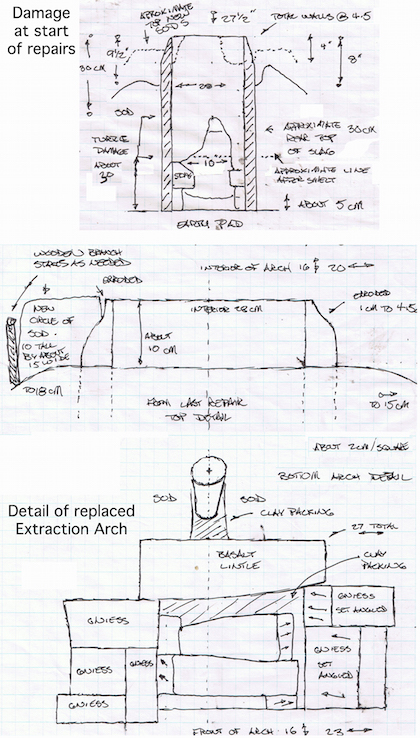 Damage
at start
of repairs
APROXIMATE
TOP NEW
SOD'S
27½"
TOTAL WALLS @ 4.5
9½
30 CM
4"
8"
28
SOD
TUREE
DAMAGE
ABOUT
30
10
APROXIMATE 30 CM
REAR TOP
OF SLAG
APROXIMATE LINE
AFTER SMELT
ABOUT 5 CM
EARTH PAD
WOODEN BRANCH
STAKES AS NEEDED
ERRODED
INTERIOR OF ARCH 16 20
NEW
CIRCLE OF
SOD.
10 TALL
BY ABOUT
15 WIDE
INTERIOR 28 CM
ERRODED
1 CM TO 4.5
ABOUT
10 CM
TO 18 CM
FROM LAST REPAIR
TOP DETAIL
TO 15 CM
ABOUT 2CM/SQUARE
BOTTOM ARCH DETAIL
Detail of replaced
Extraction Arch
SOD
SOD
CLAY PACKING
27 TOTAL
BASALT
LINTLE
CLAY
PACKING
GNIESS
GNIESS
SET ANGLED
GNIESS
GNIESS
GNIESS
SET
ANGLED
GNIESS
FRONT OF ARCH 16 23